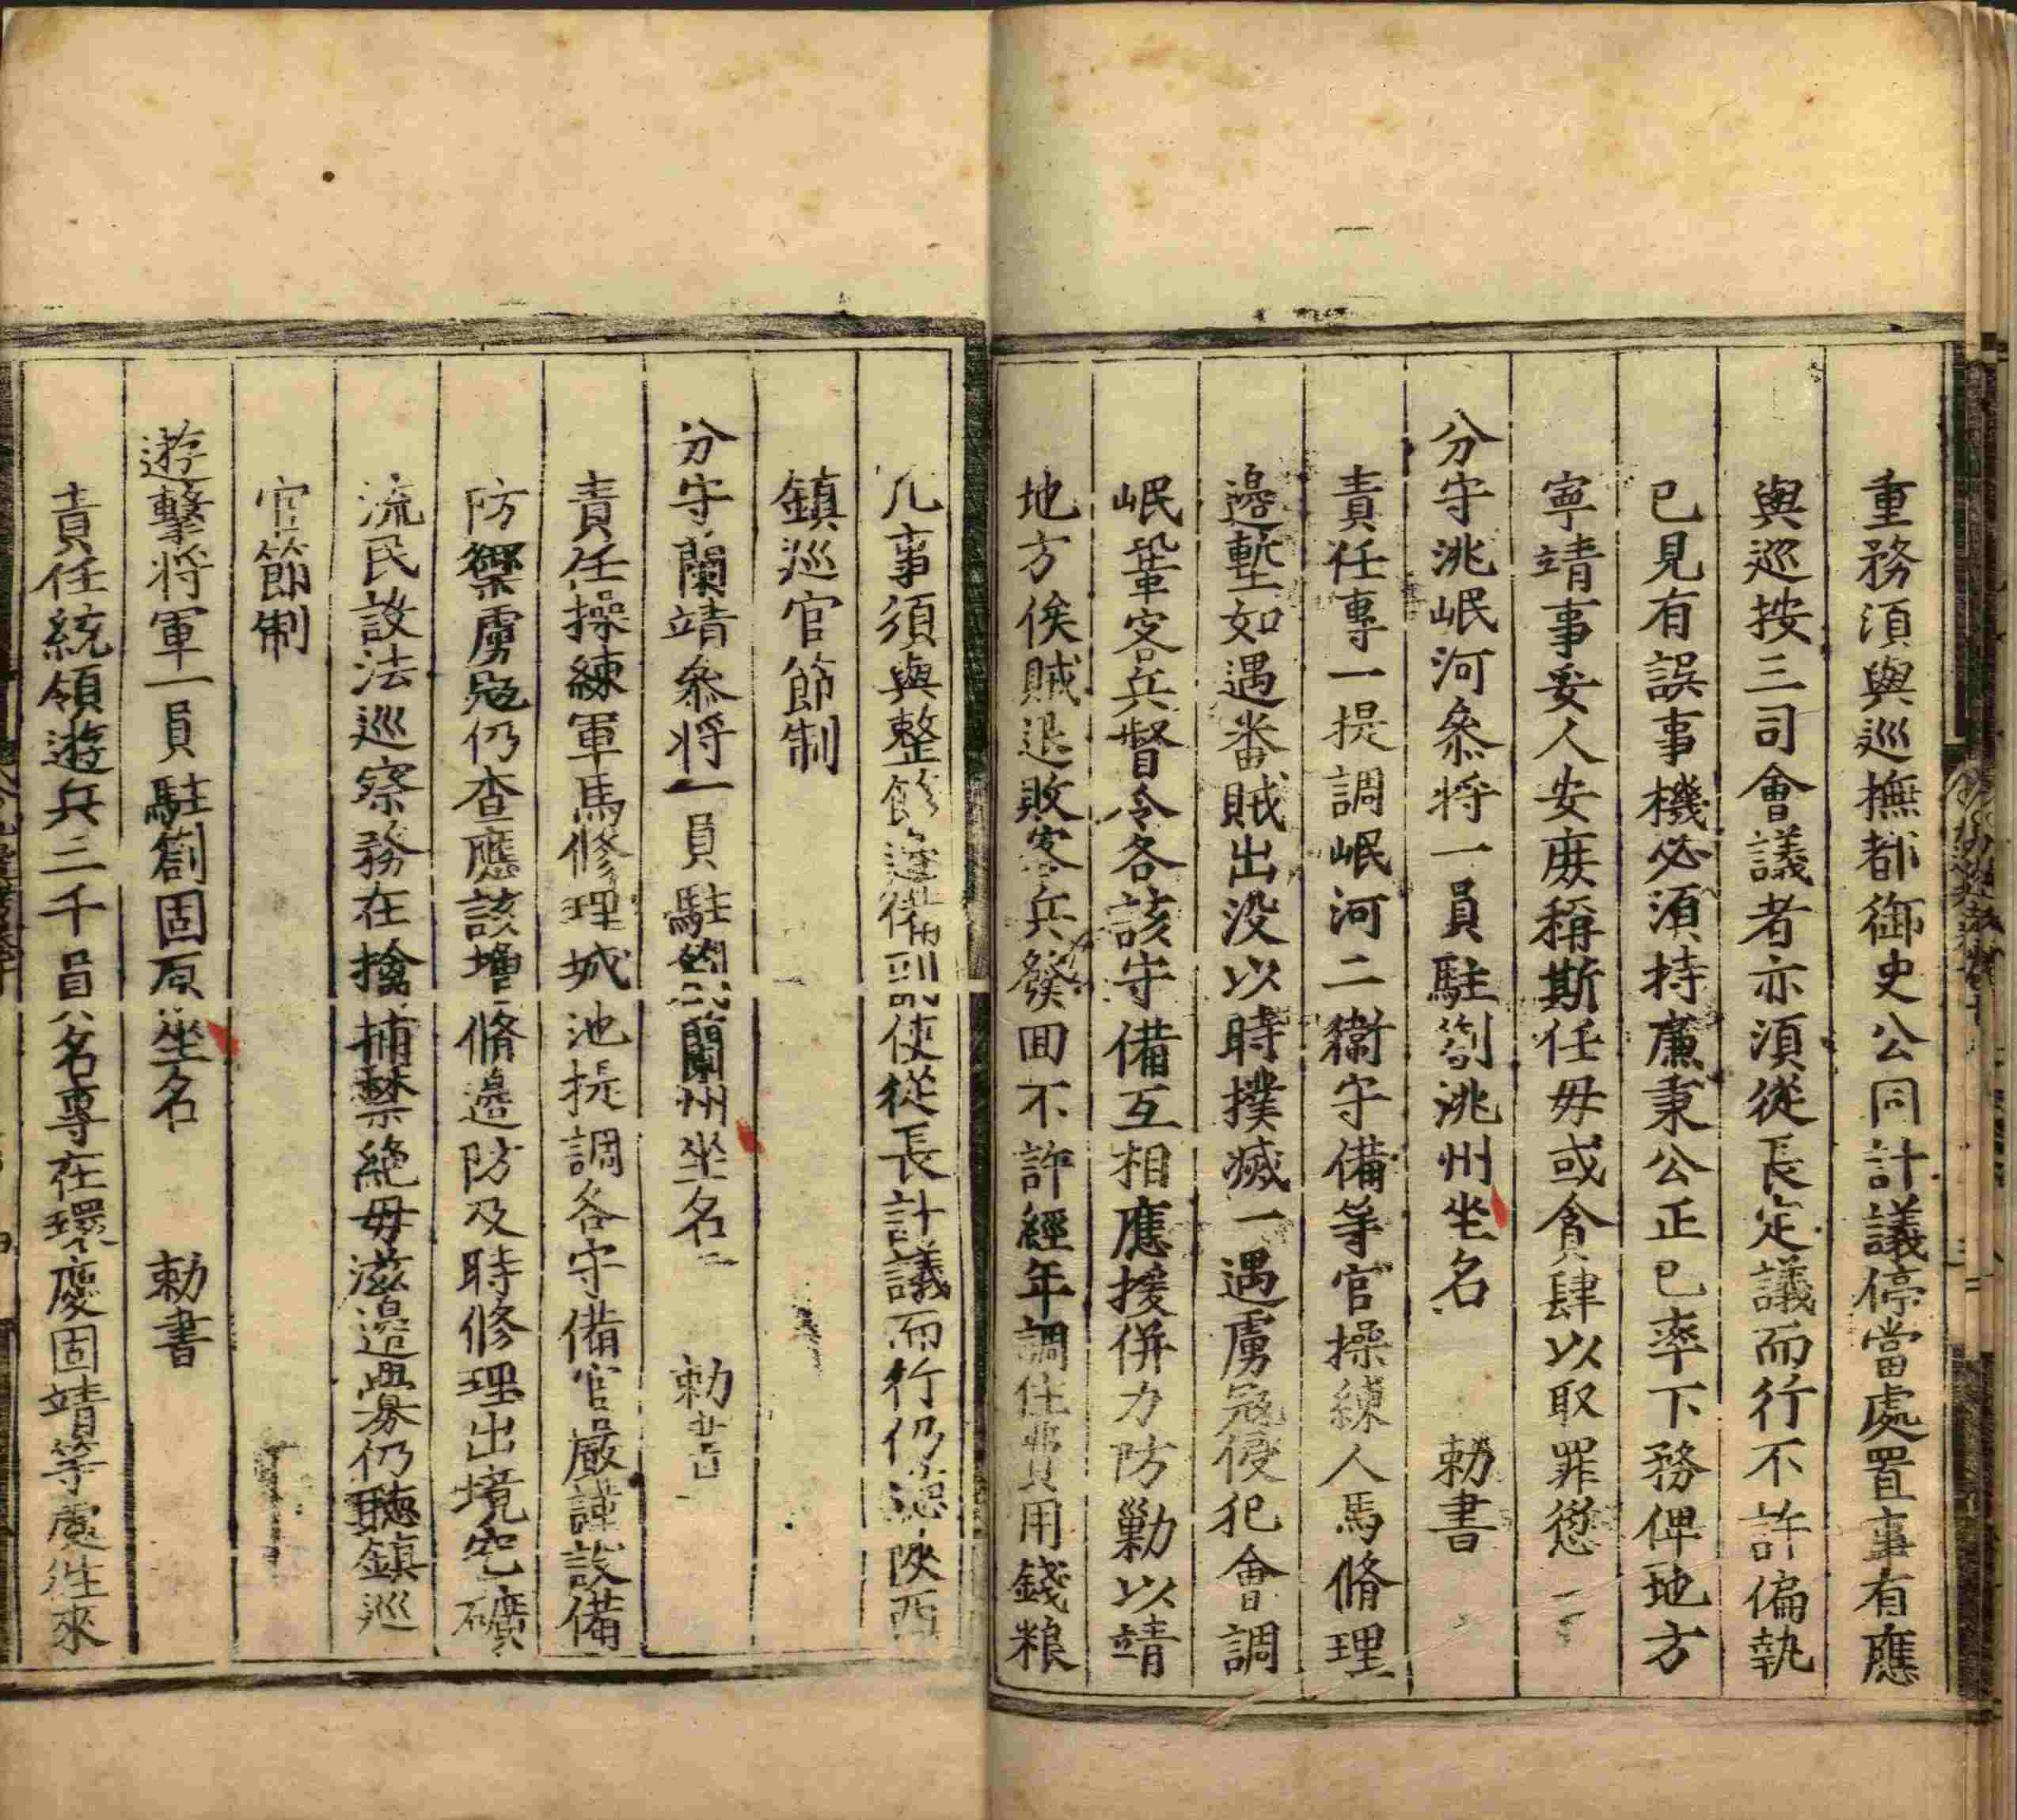 重務須與巡撫都御史公同計議停當處置事有應
與巡按三司會議者亦須從長定議而行不許偏執
已見有誤事機必須持廉秉公正已率下務俾地方
寧靖事妥人安庶稱斯任毋或貪肆以取罪愆
分守洮岷河叅将一員駐劄洮州坐名 勅書
責任專一提調岷河二衛守備等官操練人馬脩理
邊塹如遇番賊出没以時撲滅一遇虜寇侵犯會調
岷鞏客兵督令各該守備互相應援併力防勦以靖
地方俟賊退敗客兵發回不許經年調住費用錢粮
凡事須與整飭邊備副使從長計議而行仍聽陜西
鎮巡官節制
分守蘭靖叅将一員駐劄蘭州坐名 勅書
責任操練軍馬修理城池提調各守備官嚴謹設備
防禦虜寇仍查應該增脩邊防及時修理出境窃礦
流民設法巡察務在擒捕禁絶毋滋邉釁仍聽鎮巡
官節制
遊擊将軍一員駐劄固原坐名 勅書
責任統領遊兵三千員名專在環慶固靖等處徃來